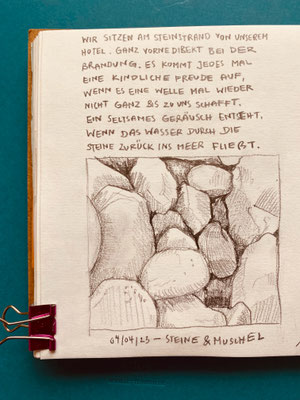 WIR SITZEN AM STEINSTRAND VON UNSEREM
HOTEL. GANZ VORNE DIREKT BEI DER
BRANDUNG. ES KOMMT JEDES MAL
EINE KINDLICHE FREUDE AUF,
WENN ES EINE WELLE MAL WIEDER
NICHT GANZ BIS ZU UNS SCHAFFT.
EIN SELTSAMES GERÄUSCH ENTSTEHT,
WENN DAS WASSER DURCH DIE
STEINE ZURÜCK INS MEER FLIEßT.
04/04/23 — STEINE & MUSCHEL